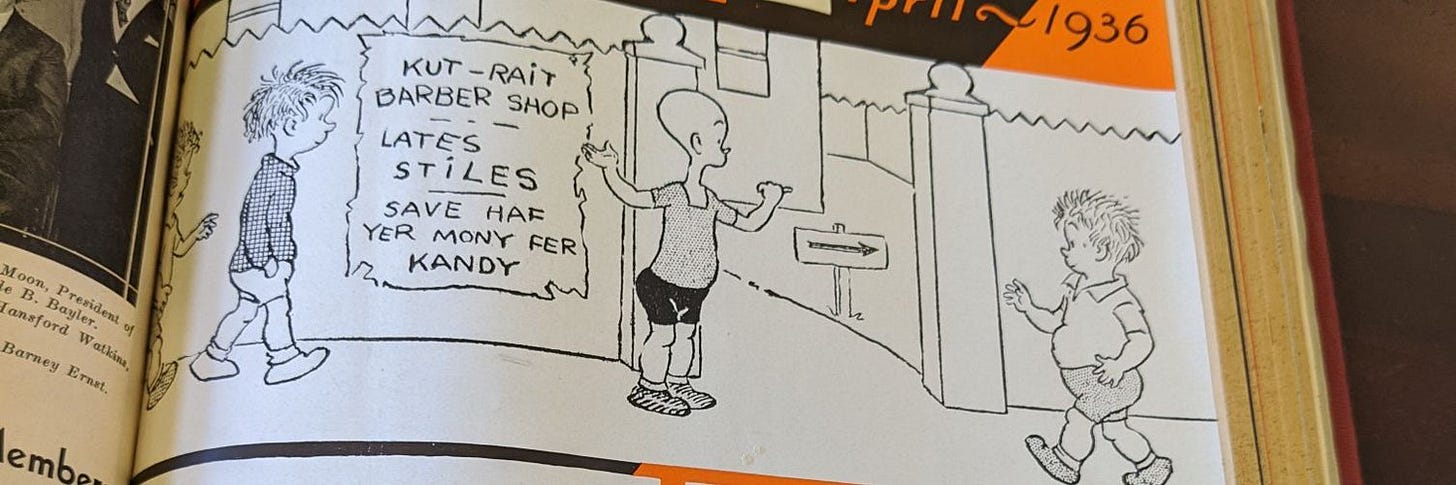 Moon, President of
le B. Bayler.
Hansford Watkins,
Barney Ernst.
lember
April ~ 1936
KUT-RAIT
BARBER SHOP
LATES
STiLES
SAVE HAF
YER MONY FER
KANDY